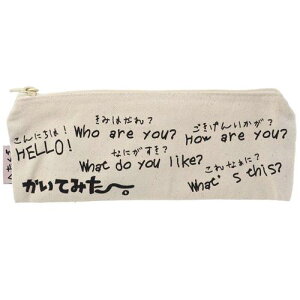 こんにちは!
HELLO!
きみはだれ?
Who are you?
ごきげんいかが?
How are you?
なにがすき?
What do you like?
これなぁに?
What's this?
かいてみた〜。